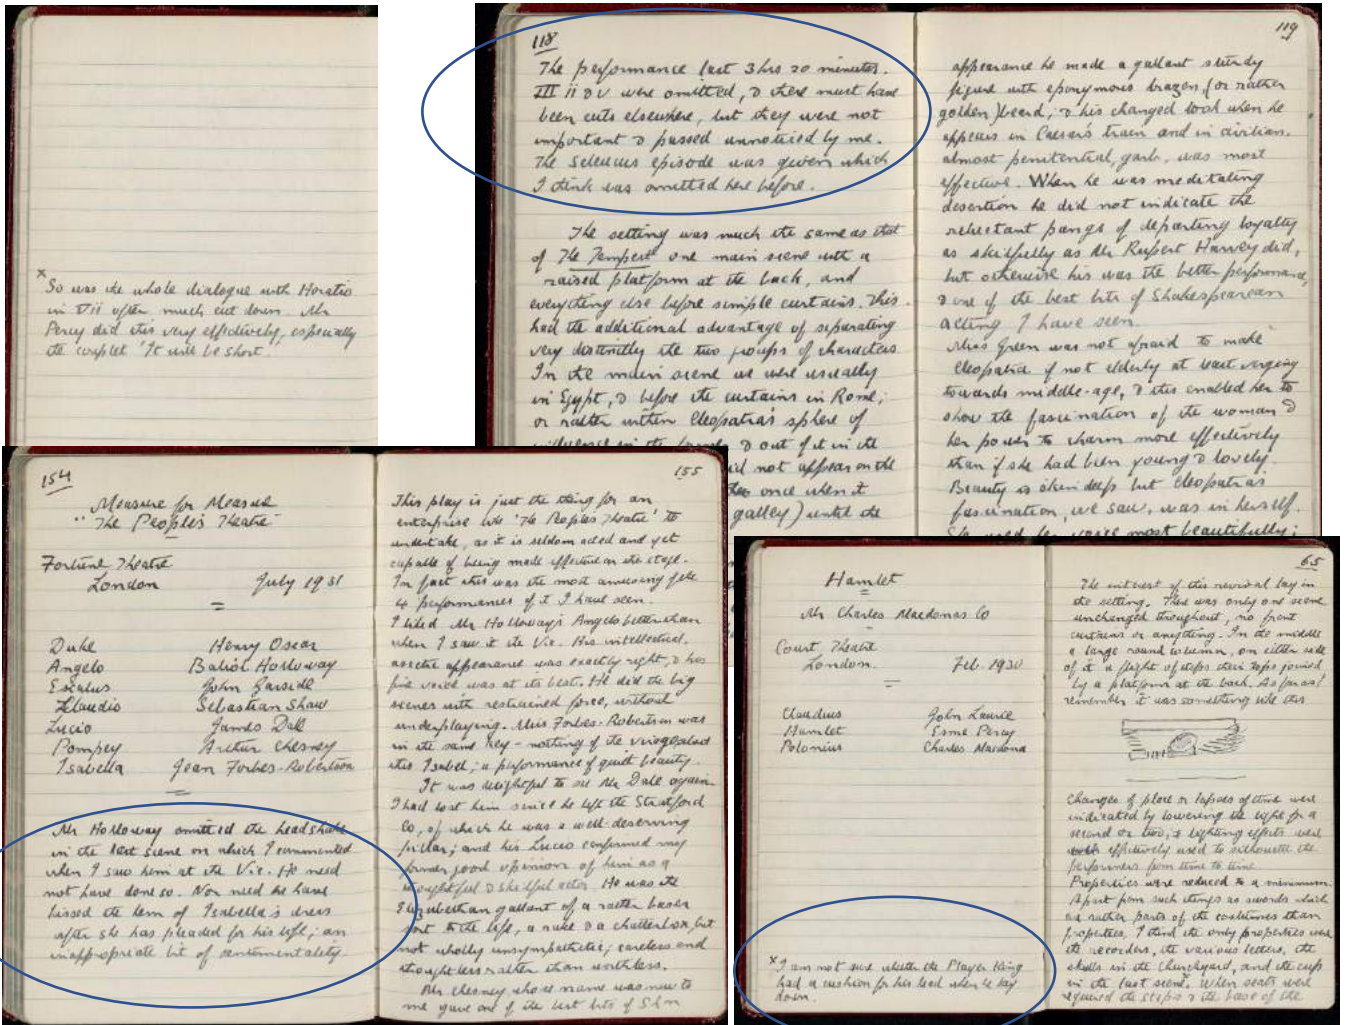 x
So was the whole dialogue with Horatio
in V ii often much cut down. Mr
Percy did this very effectively, especially
the couplet 'It will be short.'
118
The performance last 3 hrs 20 minutes.
III ii & V were omitted, & there must have
been cuts elsewhere, but they were not
important & passed unnoticed by me.
The Seleucus episode was given which
I think was omitted here before.
The setting was much the same as that
of The Tempest one main scene with a
raised platform at the back, and
everything else before simple curtains. This
had the additional advantage of separating
very distinctly the two groups of characters
In the main scene we were usually
in Egypt, & before the curtains in Rome;
or rather within Cleopatra's sphere of
& out of it in the
did not appear on the
once when it
galley) until the
119
appearance he made a gallant sturdy
figure with eponymous brazen, (or rather
golden) beard; & his changed look when he
appears in Caesar's train and in civilian,
almost penitential, garb, was most
effective. When he was meditating
desertion he did not indicate the
reluctant pangs of departing loyalty
as skilfully as Mr Rupert Harvey did,
but otherwise his was the better performance,
& one of the best bits of Shakespearean
acting I have seen.
Miss Green was not afraid to make
Cleopatra if not elderly at least verging
towards middle-age, & this enabled her to
show the fascination of the woman &
her power to charm more effectively
than if she had been young & lovely.
Beauty is skin deep but Cleopatra's
fascination, we saw, was in herself.
She used her voice most beautifully;
154
Measure for Measure
"The People's Theatre"
Fortune Theatre
London July 1931
Duke Henry Oscar
Angelo Baliol Holloway
Escalus John Garside
Claudio Sebastian Shaw
Lucio James Dale
Pompey Arthur Chesney
Isabella Jean Forbes-Robertson
Mr Holloway omitted the headshake
in the last scene on which I commented
when I saw him at the Vic. He need
not have done so. Nor need he have
kissed the hem of Isabella's dress
after she has pleaded for his life; an
inappropriate bit of sentimentality.
155
This play is just the thing for an
enterprise like 'The Peoples Theatre' to
undertake, as it is seldom acted and yet
capable of being made effective on the stage.
In fact this was the most amusing of the
4 performances of it I have seen.
I liked Mr Holloway's Angelo better than
when I saw it the Vic. His intellectual,
ascetic appearance was exactly right, & his
fine voice was at its best. He did the big
scenes with restrained force, without
underplaying. Miss Forbes-Robertson was
in the same key - nothing of the
this Isabel; a performance of quiet beauty.
It was delightful to see Mr Dale again.
I had lost him since he left the Stratford
Co, of which he was a well-deserving
pillar; and his Lucio confirmed my
former good opinion of him as a
thoughtful & skilful actor. He was the
Elizabethan gallant of a rather baser
sort to the life, a rake & a chatterbox, but
not wholly unsympathetic; careless and
thoughtless rather than worthless.
Mr Chesney whose name was new to
me gave one of the best bits of
Hamlet
Mr Charles Macdonas Co
Court Theatre
London. Feb. 1930
Claudius John Laurie
Hamlet Esme Percy
Polonius Charles Macdona
x I am not sure whether the Player King
had a cushion for his head when he lay
down.
65
The interest of this revival lay in
the setting. There was only one scene
unchanged throughout, no front
curtains or anything. In the middle
a large round column, on either side
of it a flight of steps their tops joined
by a platform at the back. As far as I
remember it was something like this
Changes of place or lapses of time were
indicated by lowering the light for a
second or two, & lighting effects were
effectively used to silhouette the
performers from time to time
Properties were reduced to a minimum.
Apart from such things as swords which
are rather parts of the costumes than
properties, I think the only properties were
the recorders, the various letters, the
skulls in the churchyard, and the cups
in the last scene. When seats were
required the steps & the base of the